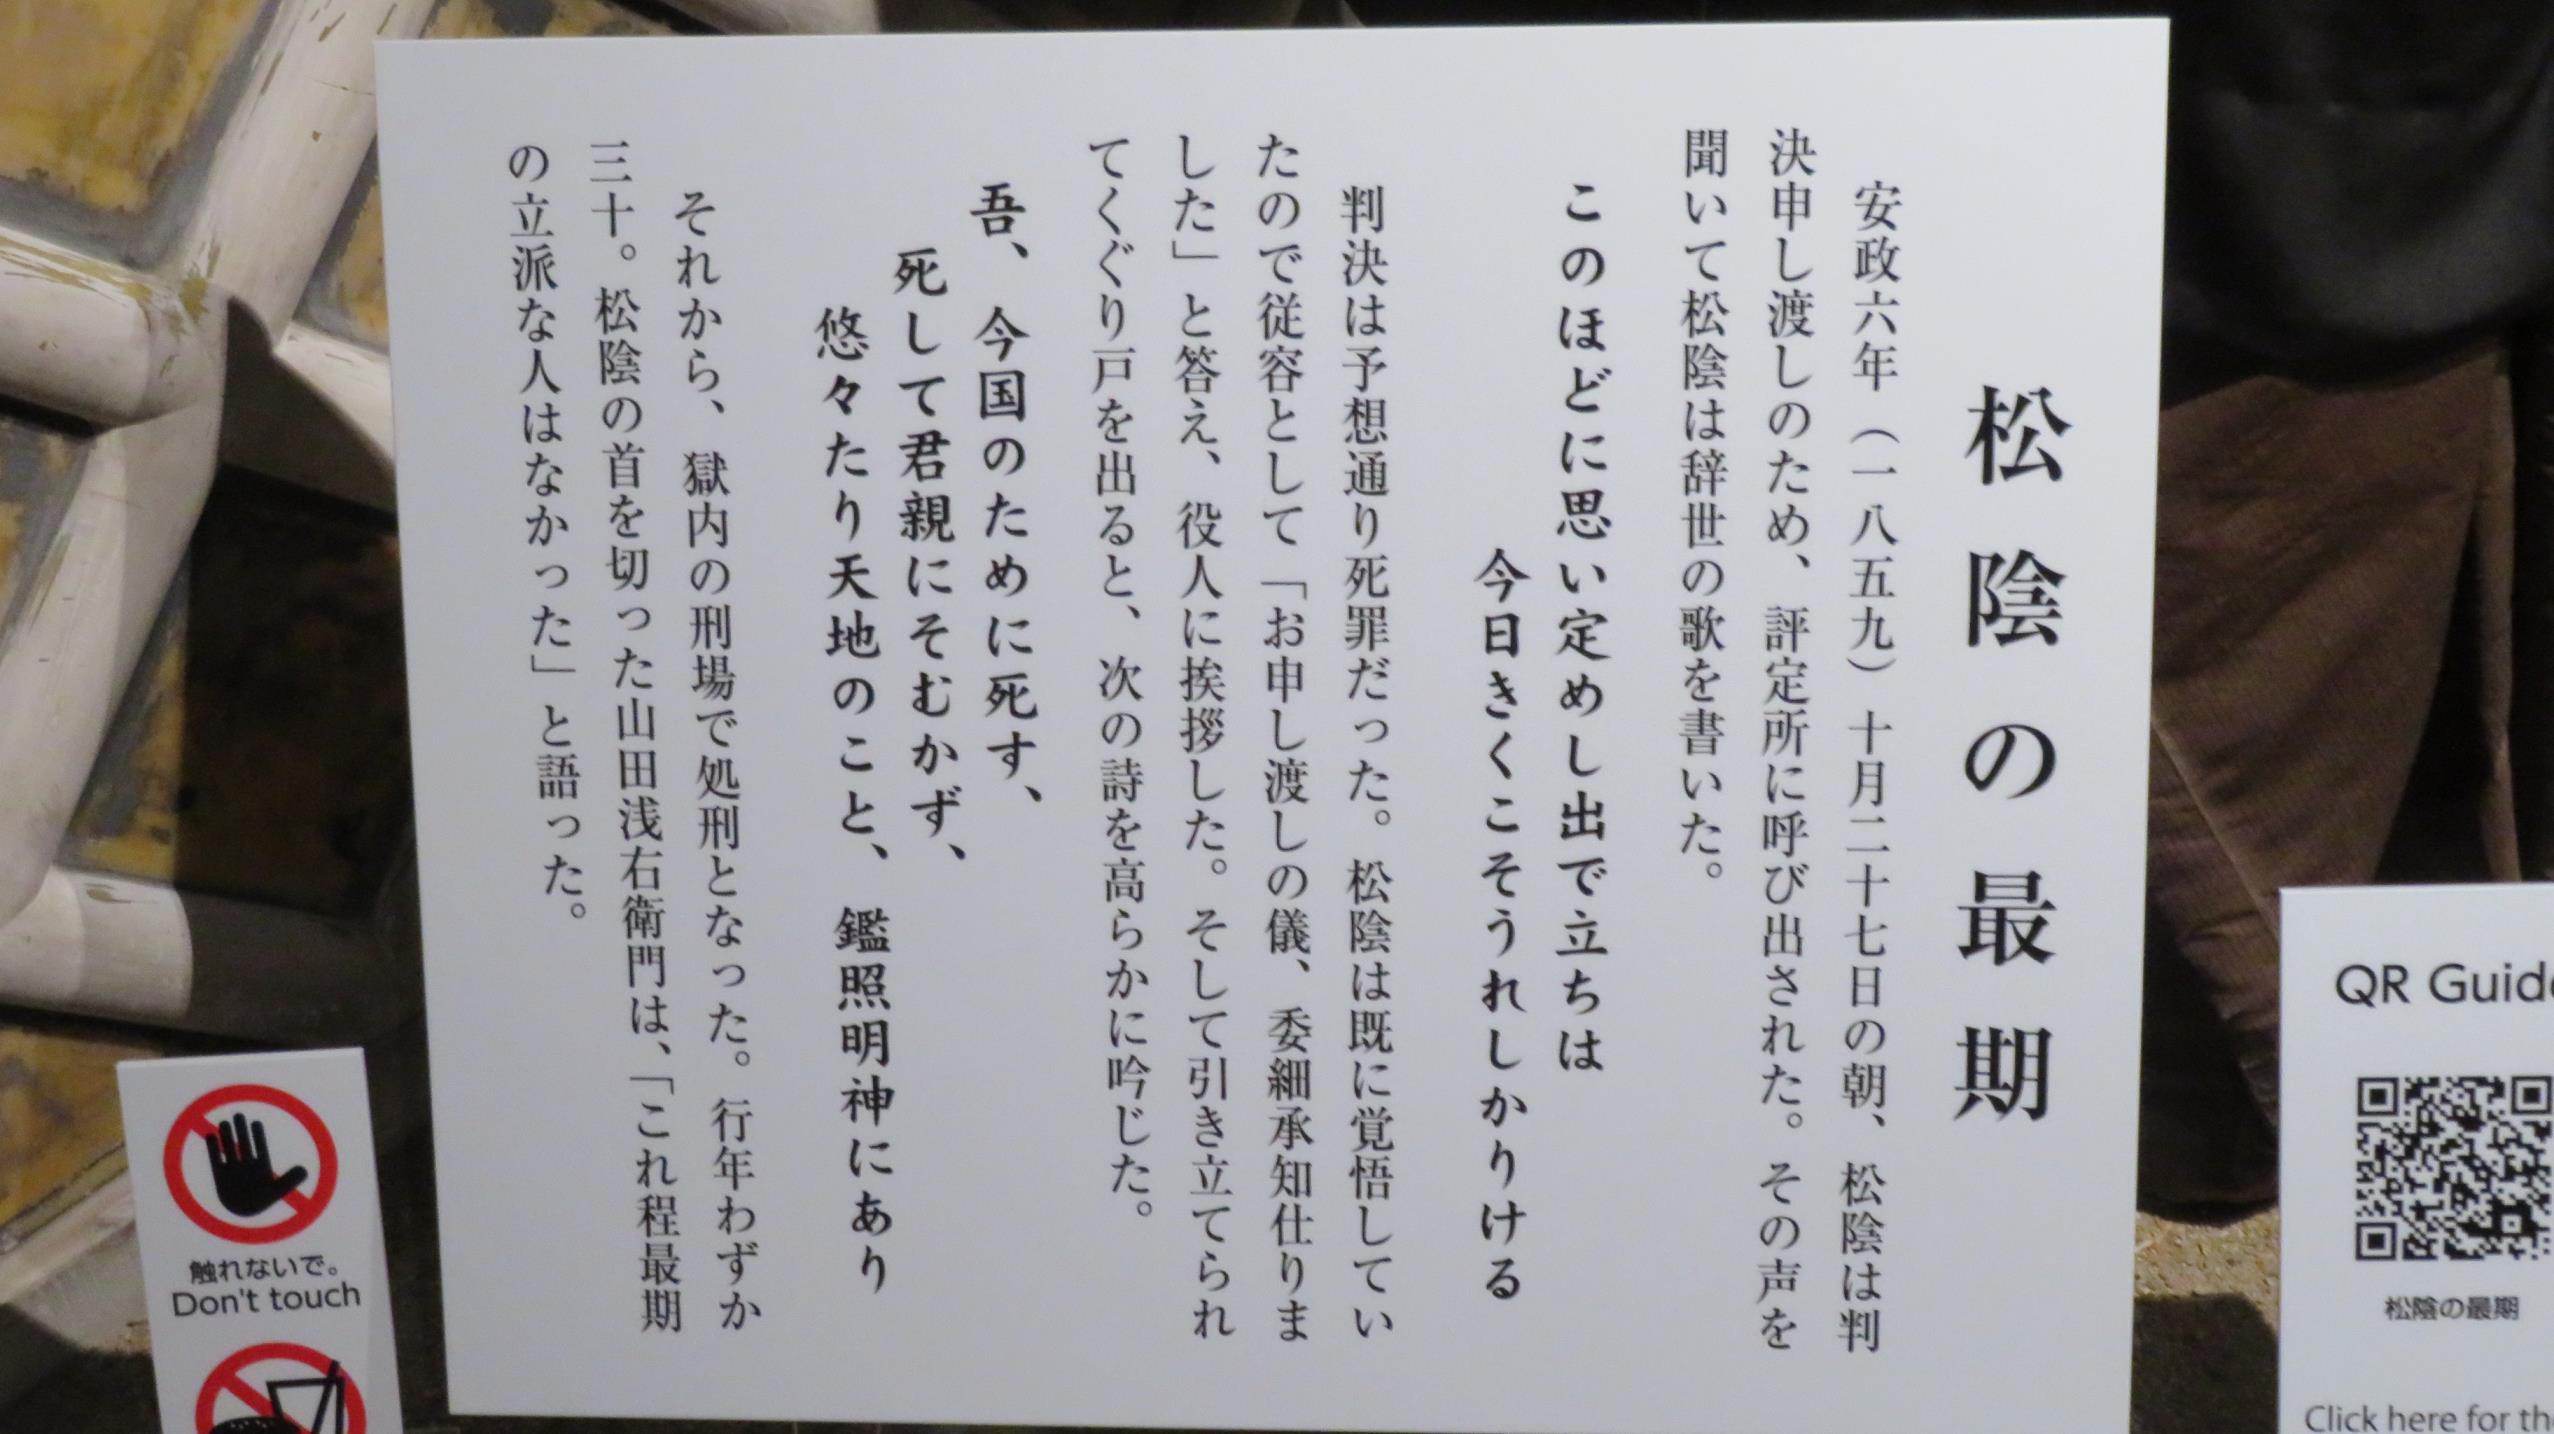 松陰の最期
安政六年（一八五九）十月二十七日の朝、松陰は判
決申し渡しのため、評定所に呼び出された。その声を
聞いて松陰は辞世の歌を書いた。
このほどに思い定めし出で立ちは
今日きくこそうれしかりける
判決は予想通り死罪だった。松陰は既に覚悟してい
たので従容として「お申し渡しの儀、委細承知仕りま
した」と答え、役人に挨拶した。そして引き立てられ
てくぐり戸を出ると、次の詩を高らかに吟じた。
吾、今国のために死す、
死して君親にそむかず、
悠々たり天地のこと、鑑照明神にあり
それから、獄内の刑場で処刑となった。行年わずか
三十。松陰の首を切った山田浅右衛門は、「これ程最期
の立派な人はなかった」と語った。
触れないで。
Don't touch
QR Guide
松陰の最期
Click here for the